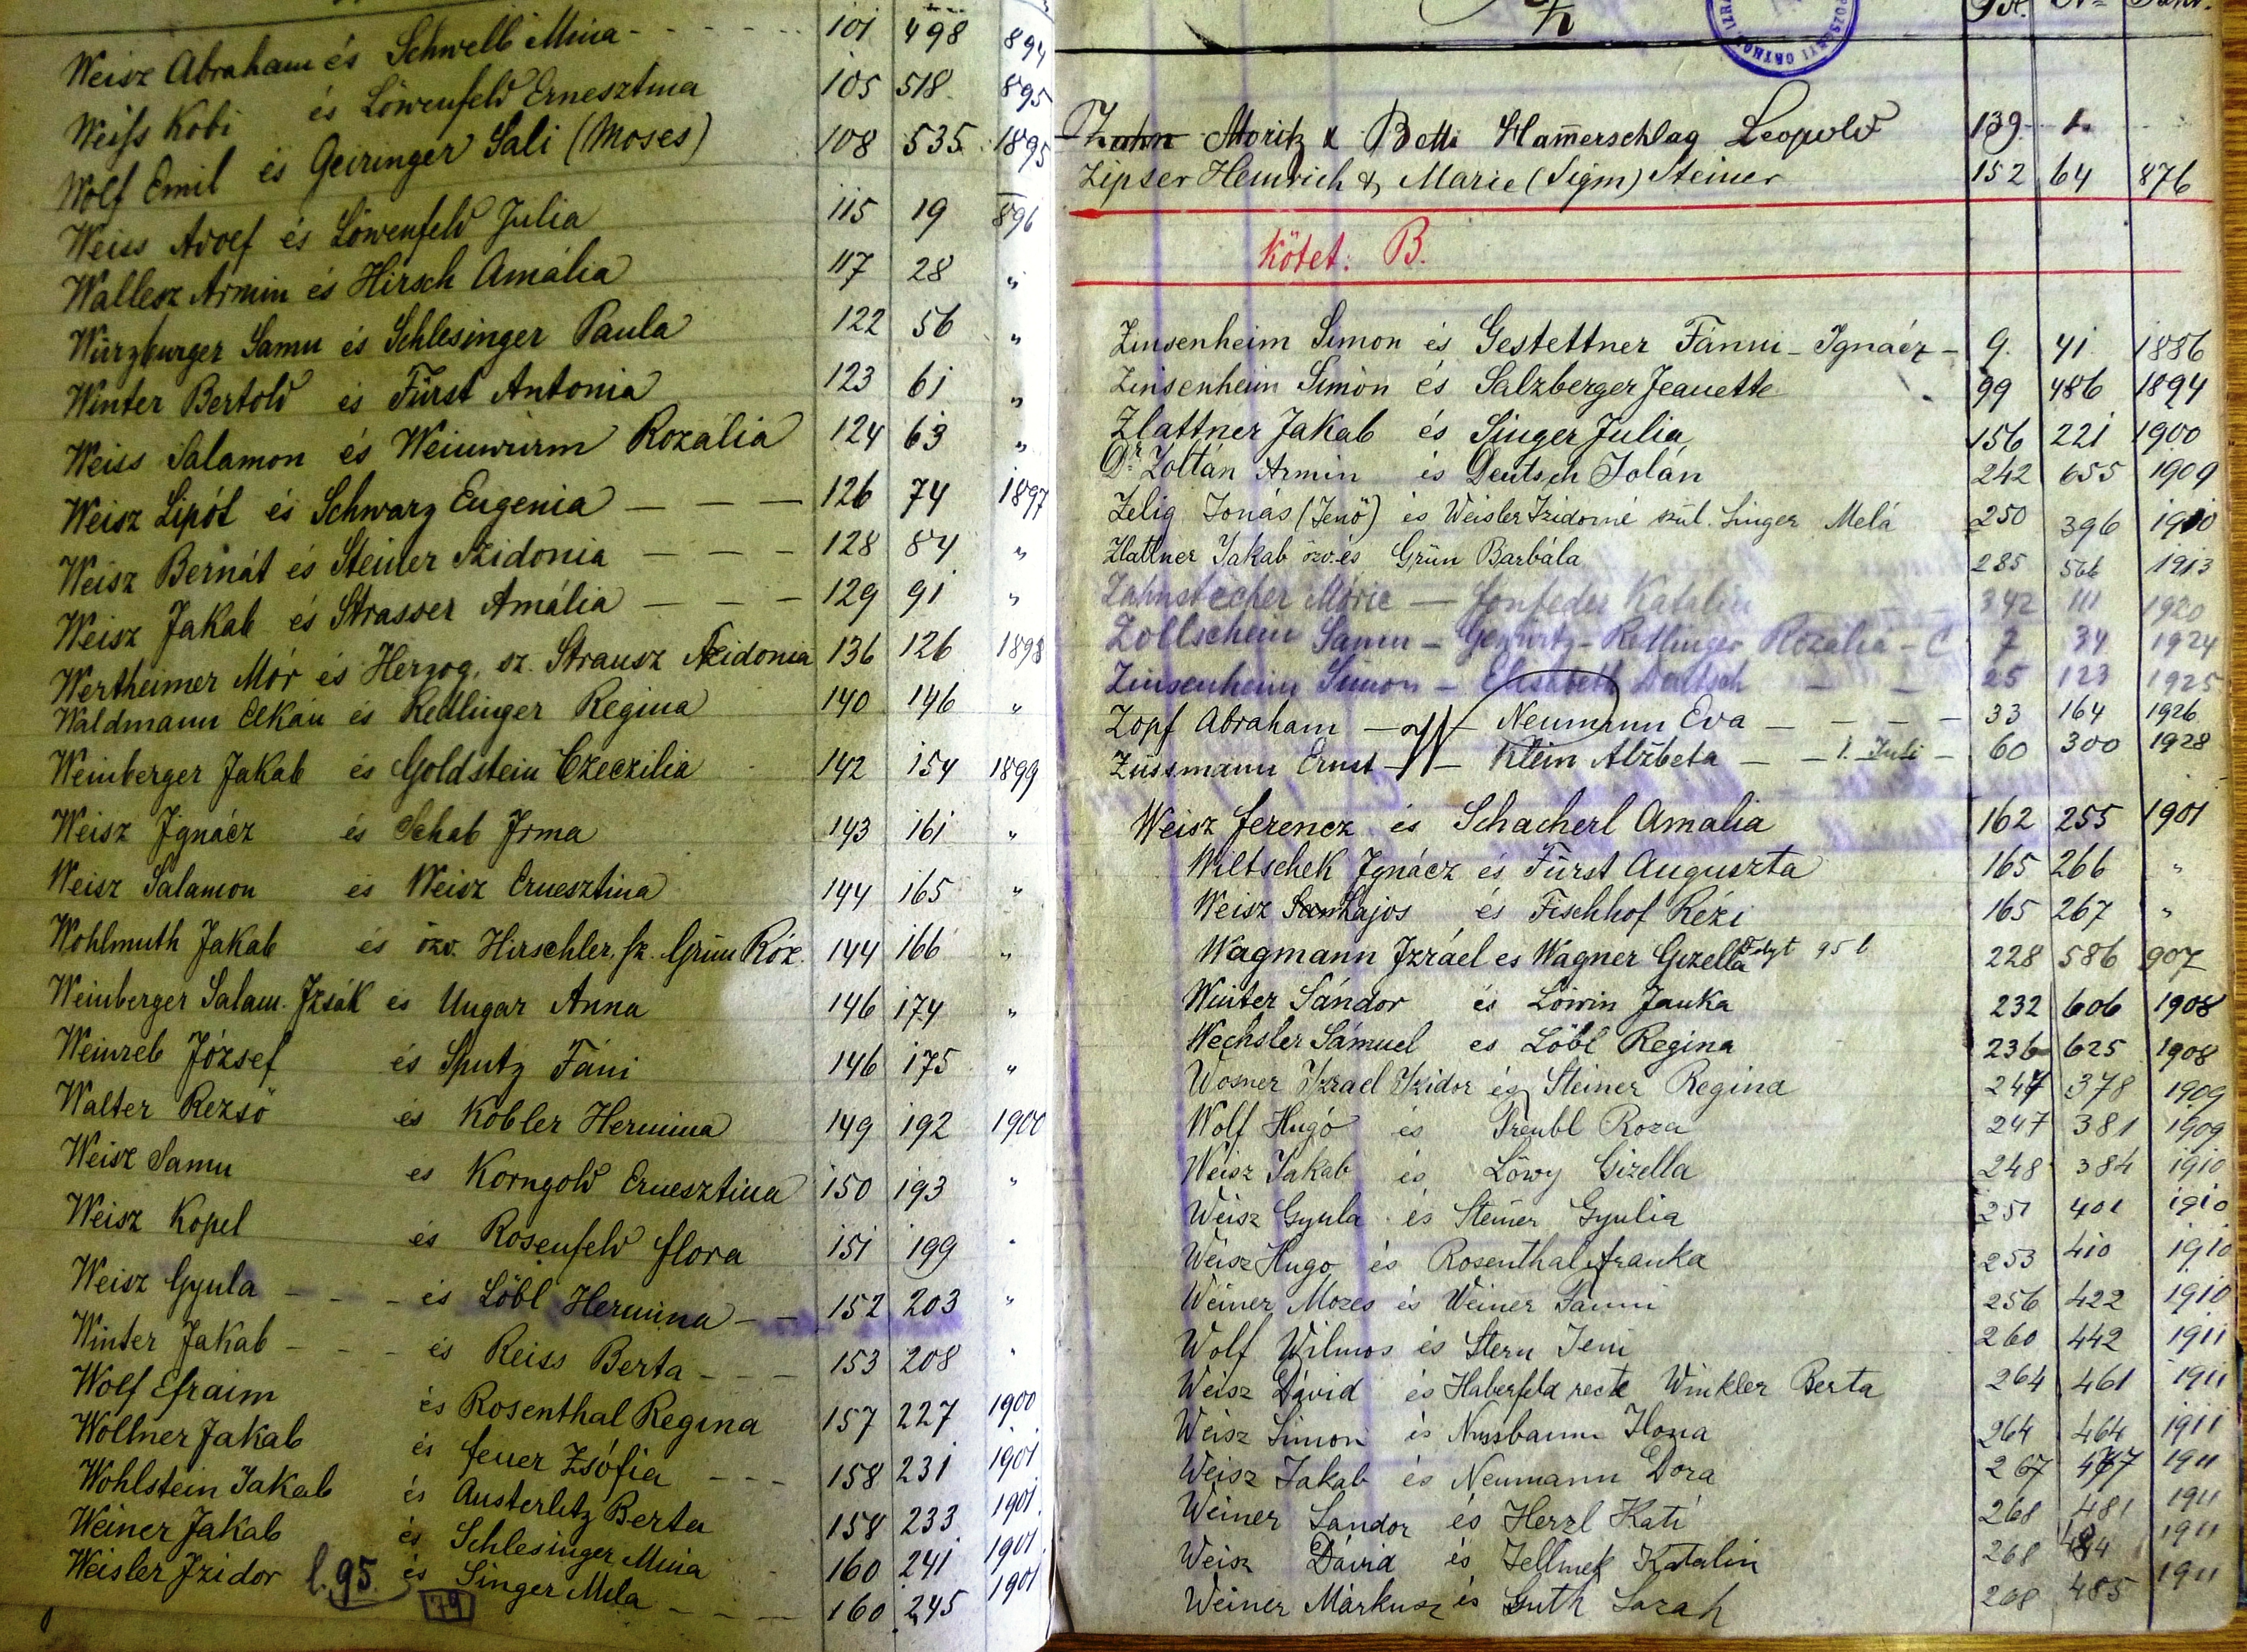 Weisz Abraham és Schwelb Mina - - - - - 101 498 894
Weiss Kobi és Löwenfeld Ernesztina 105 518 895
Wolf Emil és Geiringer Sali (Moses) 108 535 1895
Weiss Adolf és Löwenfeld Julia 115 19 896
Wallesz Armin és Hirsch Amália 117 28 "
Würzburger Samu és Schlesinger Paula 122 56 "
Winter Bertold és Fürst Antonia 123 61 "
Weiss Salamon és Weinwurm Rozália 124 63 "
Weisz Lipót és Schwarz Eugenia — — — 126 74 1897
Weisz Bernát és Steiner Szidonia — — — 128 84 "
Weisz Jakab és Strasser Amália — — — 129 91 "
Wertheimer Mór és Herzog, sz. Strausz Szidonia 136 126 1898
Waldmann Elkán és Redlinger Regina 140 146 "
Weinberger Jakab és Goldstein Czeczilia 142 154 1899
Weisz Ignácz és Schab Irma 143 161 "
Weisz Salamon és Weisz Ernesztina 144 165 "
Wohlmuth Jakab és özv. Hirschler, sz. Grün Róz. 144 166 "
Weinberger Salam. Izsák és Ungar Anna 146 174 "
Weinreb József és Sputz Fáni 146 175 "
Walter Rezsö és Kobler Hermina 149 192 1900
Weisz Samu és Korngold Ernesztina 150 193 "
Weisz Kopel és Rosenfeld Flora 151 199 "
Weisz Gyula - - - és Löbl Hermina - - 152 203 "
Winter Jakab - - - és Reiss Berta - - - 153 208 "
Wolf Efraim és Rosenthal Regina 157 227 1900
Wollner Jakab és Feuer Zsófia - - - 158 231 1901
Wohlstein Jakab és Austerlitz Berta 158 233 1901.
Weiner Jakab és Schlesinger Mina 160 241 1901.
Weisler Izidor l. 95. és Singer Mela - - - 160 245 1901
79
Zahn Moritz & Betti Hammerschlag Leopold 139. 1.
Zipser Heinrich & Marie (Sigm) Steiner 152 64 876
Kötet: B.
Zinsenheim Simon és Gestettner Fánni - Ignácz - 9. 41 1886
Zinsenheim Simon és Salzberger Jeanette 99 486 1894
Zlattner Jakab és Singer Julia 156 221 1900
Dr. Zoltán Armin és Deutsch Jolán 242 655 1909
Zelig Jonás (Jenö) és Weisler Izidorné szül. Singer Melá 250 396 1910
Zlattner Jakab özv. és Grün Barbála 285 566 1913
Zahnstecher Móric — Katalin 342 111 1920
Zollschein Samu - Gewürtz - Redlinger Rozália - C 7 34 1924
Zinsenheim Simon - Elisabeth Deutsch - - 25 123 1925
Zopf Abraham — — Neumann Eva - - - - - 33 164 1926
Züssmann Ernst — — Klein Alžbeta — — 1. Juli - 60 300 1928
Weisz Ferencz és Schacherl Amalia 162 255 1901
Wiltschek Ignácz és Fürst Auguszta 165 266 "
Weisz Lajos és Fischhof Rézi 165 267 "
Wagmann Izráel és Wagner Gizella 95 l 228 586 907
Winter Sándor és Löwin Janka 232 606 1908
Wechsler Sámuel és Löbl Regina 236 625 1908
Wosner Izrael Izidor és Steiner Regina 247 378 1909
Wolf Hugó és Treubl Roza 247 381 1909
Weisz Jakab és Löwy Gizella 248 384 1910
Weisz Gyula és Steiner Gyulia 251 401 1910
Weisz Hugo és Rosenthal Franka 253 410 1910
Weiner Mozes és Weiner Fanni 256 422 1910
Wolf Wilmos és Stern Jeni 260 442 1911
Weisz Dávid és Haberfeld recte Winkler Berta 264 461 1911
Weisz Simon és Nussbaum Ilona 264 464 1911
Weisz Jakab és Neumann Dora 267 477 1911
Weiner Sandor és Herzl Kati 268 481 1911
Weisz Dávid és Jellinek Katalin 268 484 1911
Weiner Márkusz és Guth Sarah 268 485 1911